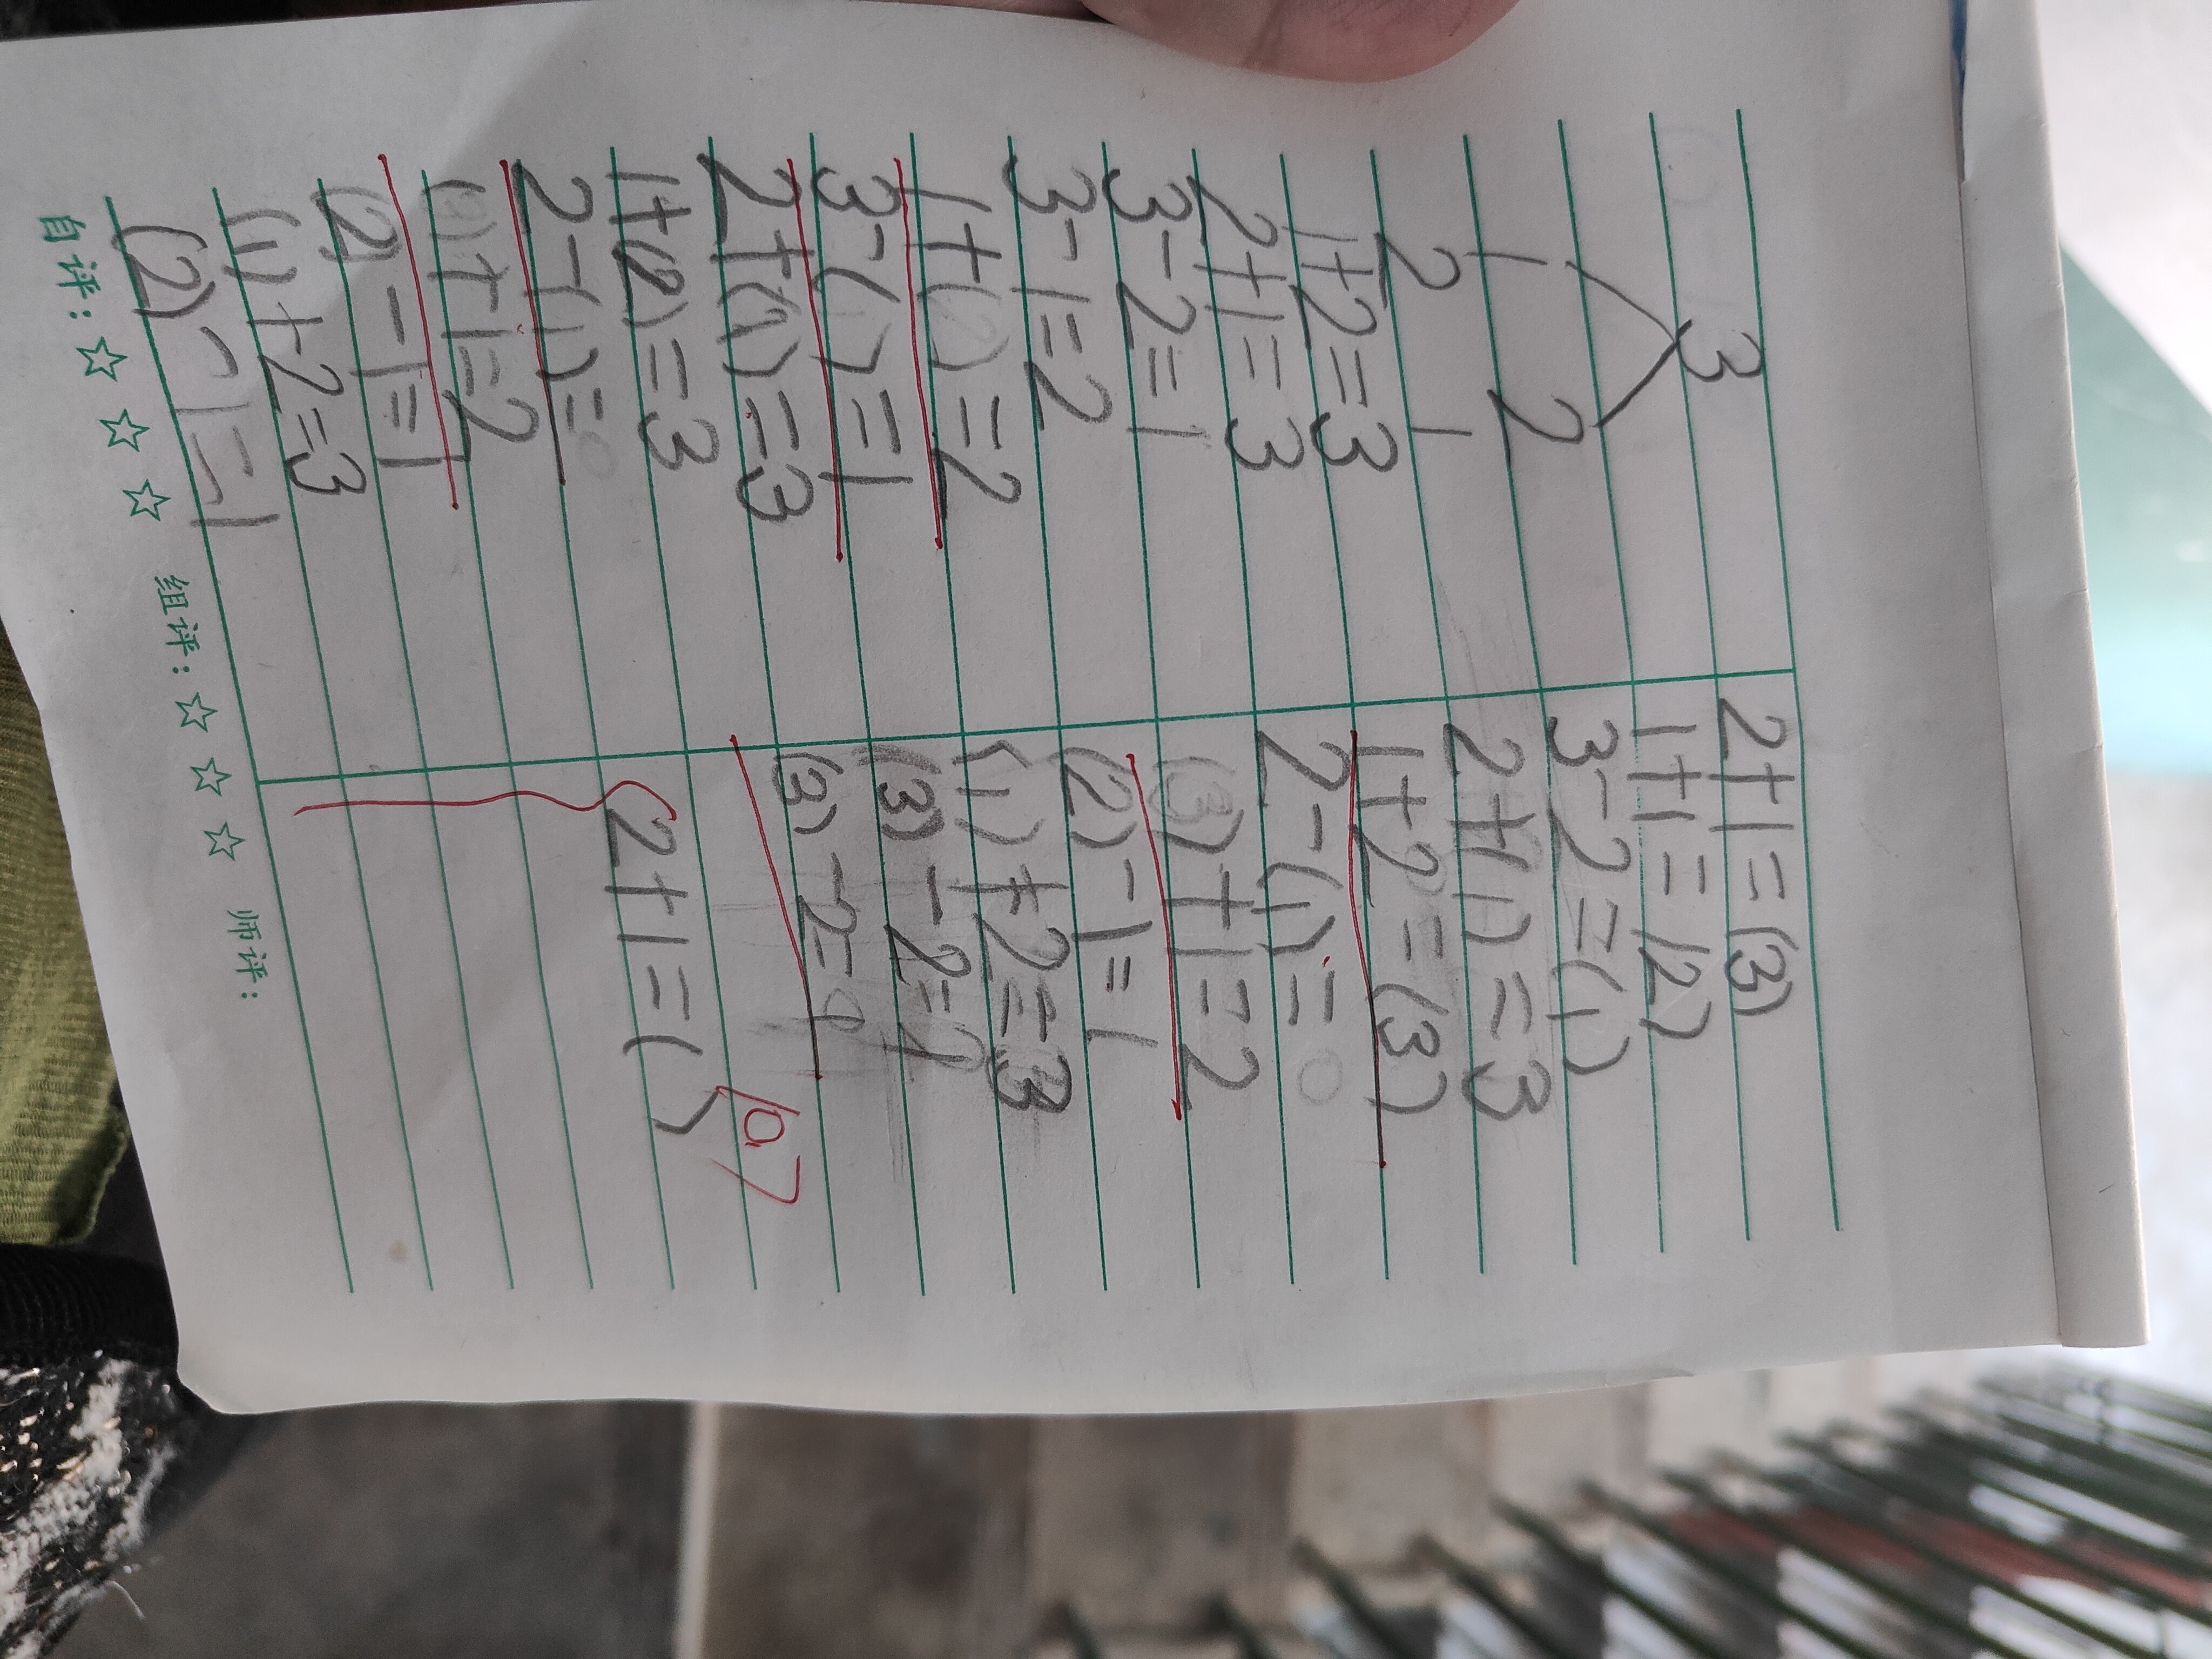 3
1 2
2 1
1+2=3
2+1=3
3-2=1
3-1=2
1+(2)=2
3-( )=1
2+(1)=3
1+(2)=3
2-(1)=0
(3)+1=2
(2)-1=1
(1)+2=3
(2)-1=1
2+1=(3)
1+1=(2)
3-2=(1)
2+(1)=3
1+2=(3)
2-(1)=0
(3)+1=2
(2)-1=1
(1)+2=3
(3)-2=1
(3)-2=
2+1=( )
自评:☆ ☆ ☆ 组评:☆ ☆ ☆ 师评: